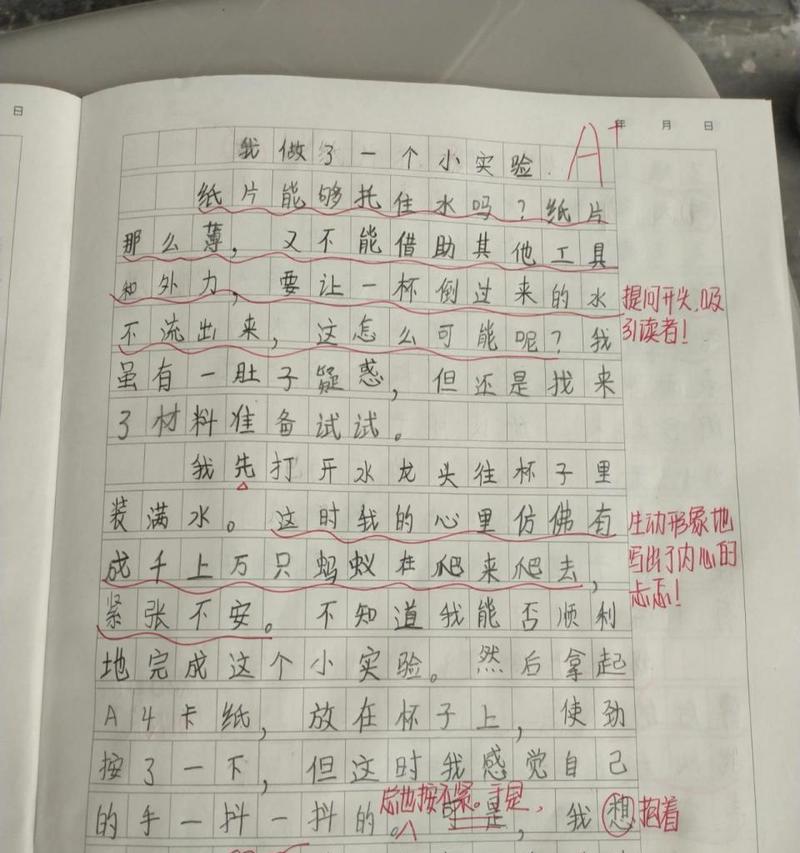 日
年 月 日
我做了一个小实验.
A+
纸片能够托住水吗？纸片
那么薄，又不能借助其他工具
和外力，要让一杯倒过来的水
提问开头，吸
引读者！
不流出来，这怎么可能呢？我
虽有一肚子疑惑，但还是找来
了材料准备试试。
我先打开水龙头往杯子里
装满水。这时我的心里仿佛有
生动形象地
写出了内心的
忐忑！
成千上万只蚂蚁在爬来爬去，
紧张不安。不知道我能否顺利
地完成这个小实验。然后拿起
A4卡纸，放在杯子上，使劲
按了一下，但这时我感觉自己
总也按不紧。于是，
的手一抖一抖的。可是，我想抱着